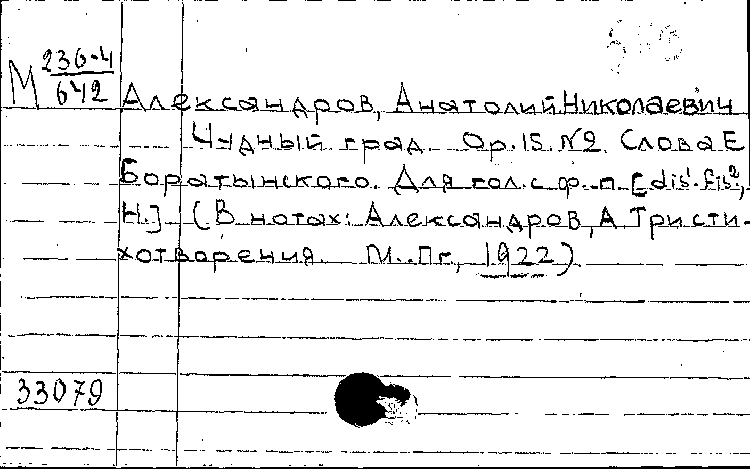 М 236-4/642
Александров, Анатолий Николаевич
Чудный град. Ор. 15. №2. Слова Е
Боратынского. Для гол. с ф.-п. [dis¹-fis²,
H.] (В нотах: Александров, А Три сти-
хотворения. М.-Пг., 1922)
33079